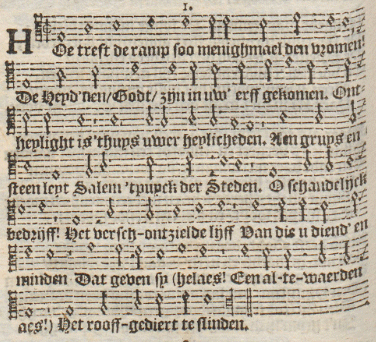 1.
HOe treft de ramp soo menighmael den vromen!
De Heyd'nen/Godt/ zijn in uw' erff gekomen. Ont-
heylight is 'thuys uwer heylicheden. Aen gruys en
steen leyt Salem 'tpuyck der Steden. O schandelijck
bedrijff! Het versch-ontzielde lijff Van die u diend' en
minden Dat geven sy (helaes! Een al-te-waerden
aes!) Het rooff-gediert te slinden.